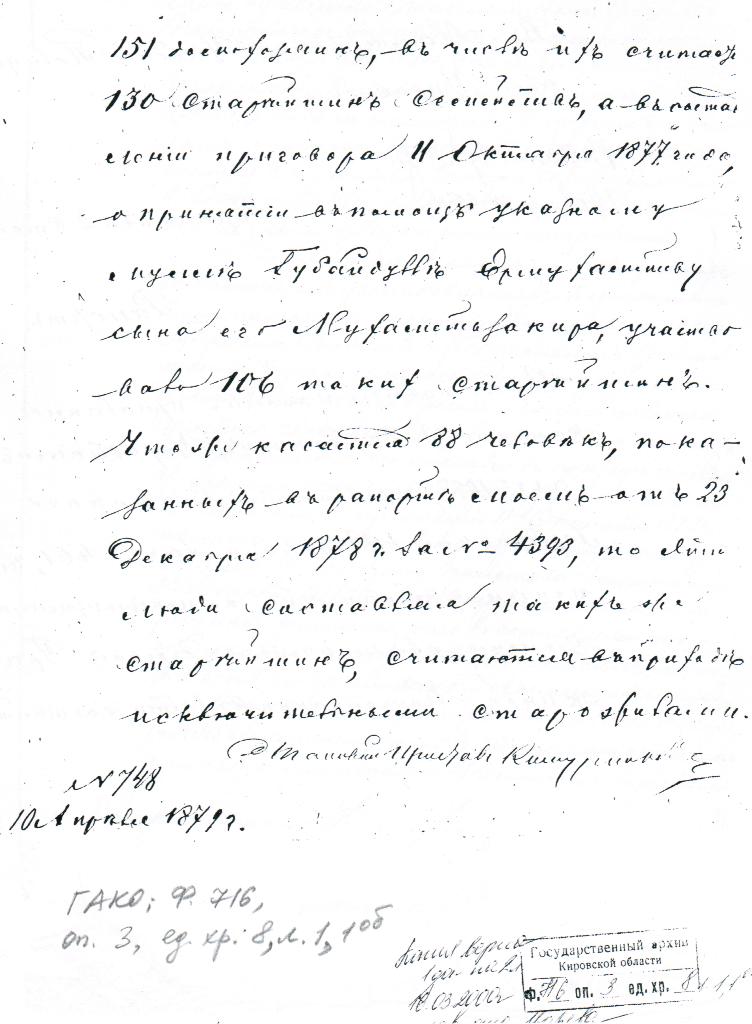 151 домохозяинъ, въ числѣ ихъ считаютъ
130 старшинъ семействъ, а въ состав
леніи приговора 11 Октября 1877 года,
о принятіи въ помощь указному
муллѣ
сына его участво
вало 106 такихъ старшинъ.
Что же касается 88 человѣкъ, пока-
занныхъ въ рапортѣ моемъ отъ 23
Декабря 1878 г. за № 4393, то эти
люди составляя такихъ же
старшинъ, считаются въ приходѣ
исключительными старожилами.
Становой Приставъ
№ 748
10 Апрѣля 1879 г.
ГАКО; Ф. 716,
оп. 3, ед. хр. 8, л. 1, 1об
Копия верна
Государственный архив
Кировской области
Ф. 716 оп. 3 ед. хр. 8